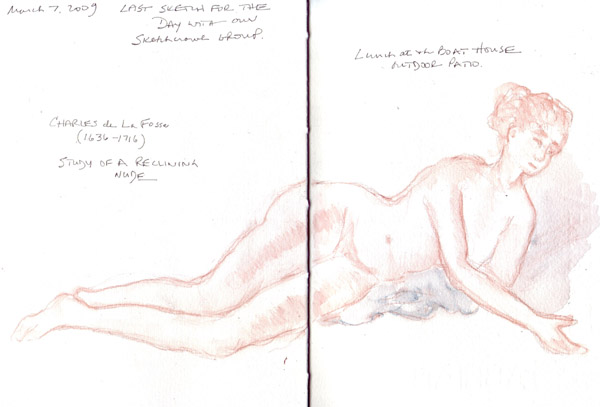 March 7, 2009
LAST SKETCH FOR THE
DAY WITH OUR
SKETCHCRAWL GROUP.
Lunch at the BOAT HOUSE
OUTDOOR PATIO.
CHARLES de La Fosse
(1636-1716)
STUDY OF A RECLINING
NUDE